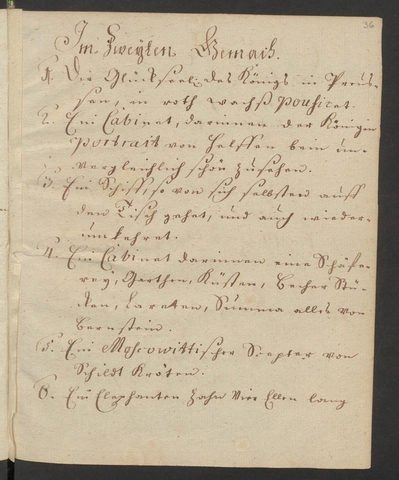 36
Im Zweyten Gemach.
1. Die Glückseel: des Königs in Preus-
sen, in roth wachs poußiret.
2. Ein Cabinet, darinnen der Königin
portrait von Helffen bein un-
vergleichlich schön zusehen.
3. Ein Schiff, so von sich selbsten auff
den Tisch gehet, und auch wieder-
umkehret.
4. Ein Cabinet darinnen eine Schäfe-
rey, Gärthen, Küsten, Becher Stü-
cken, Summa alles von
Bernstein.
5. Ein Moscowittischer Scepter von
Schildt Kröten.
6. Ein Elephanten Zahn Vier Ellen lang